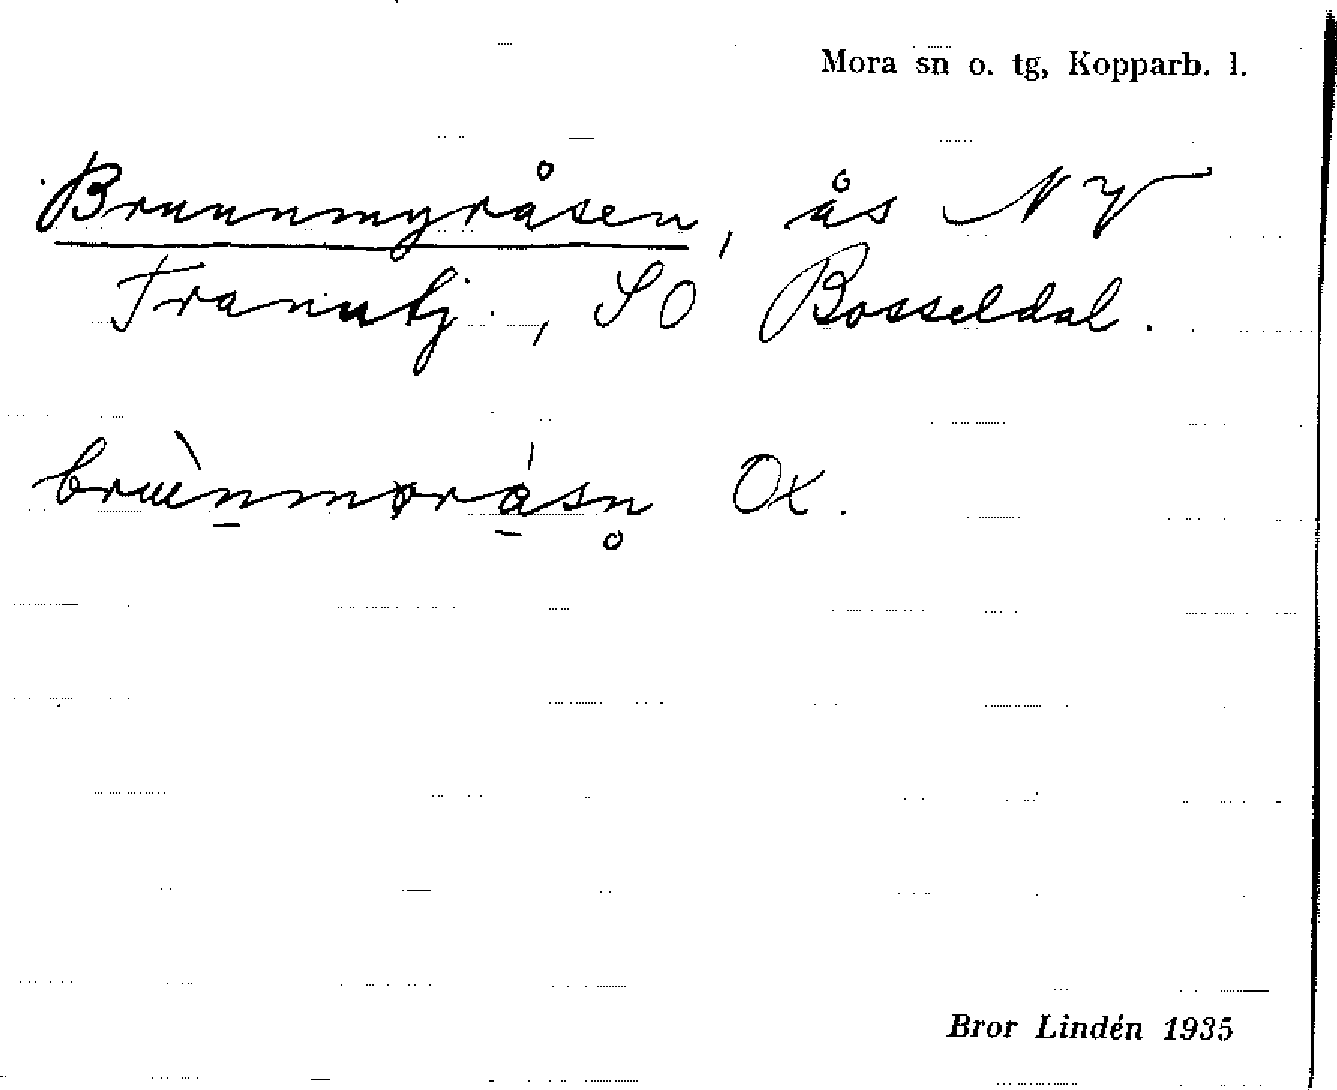 Mora sn o. tg, Kopparb. l.
Brunnmyråsen, ås NV
Tranutj., SO Bosseldal.
brùn̲mørá̲sn̥ Ox.
Bror Lindén 1935